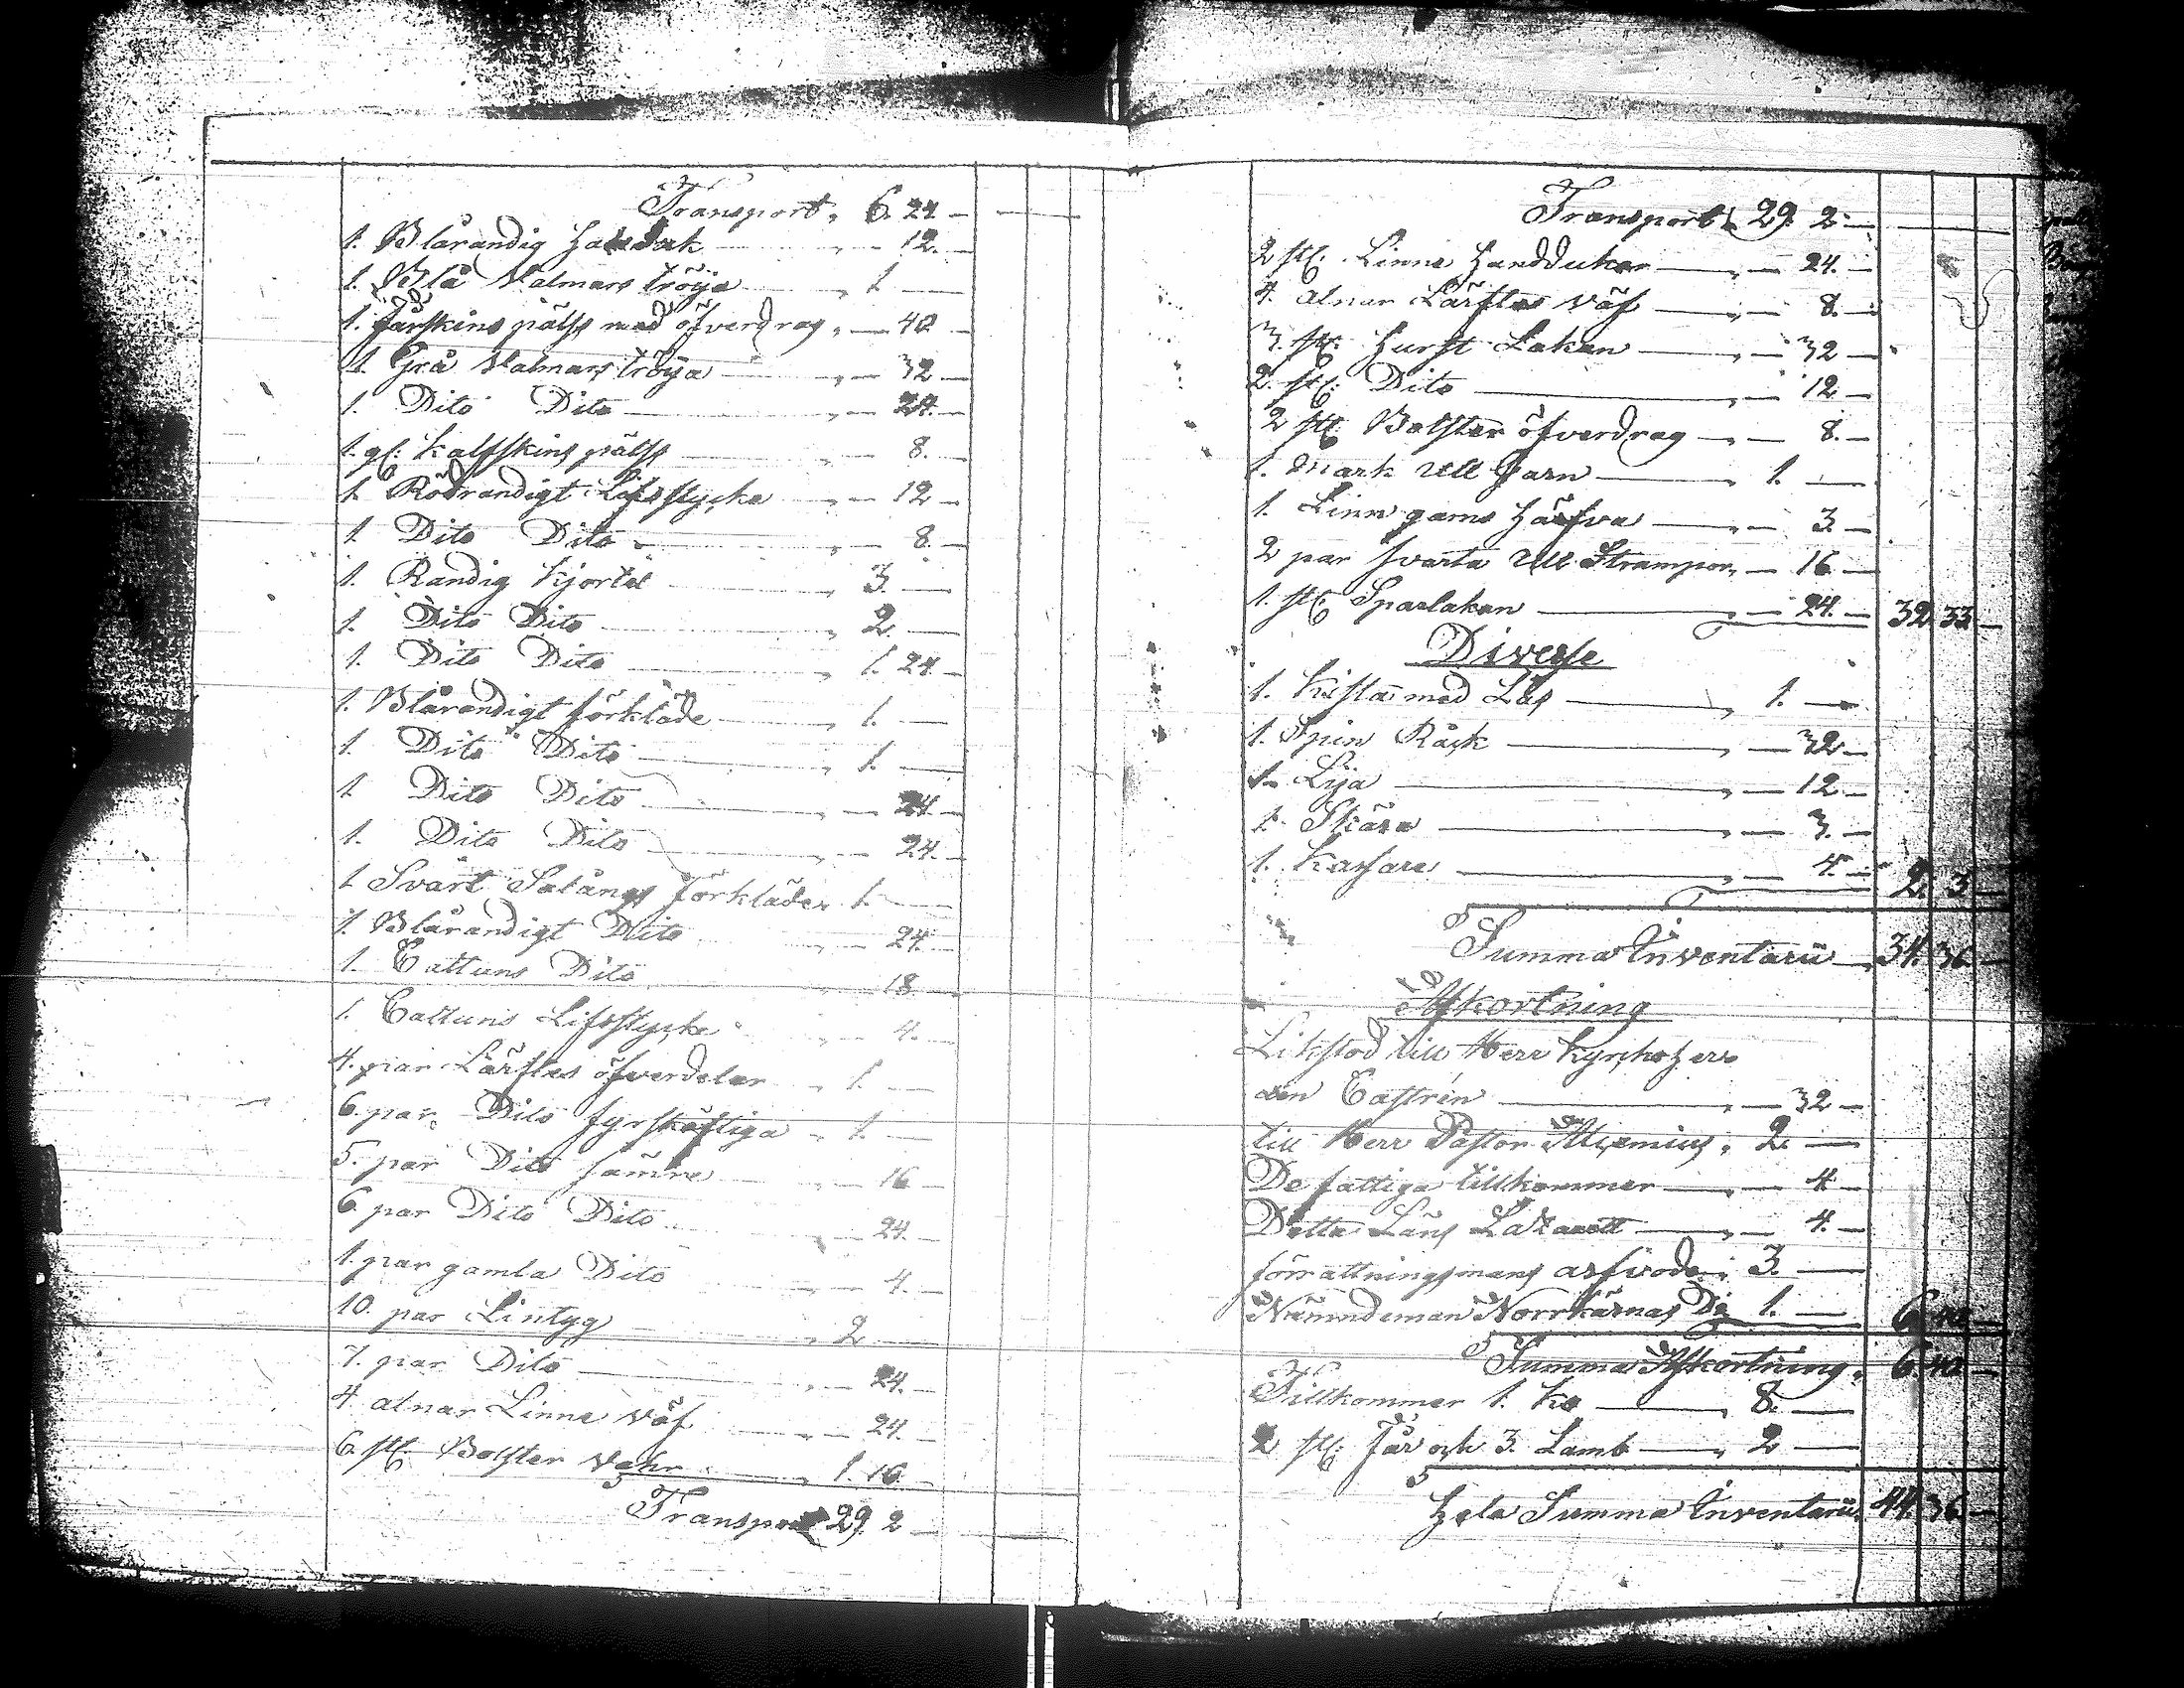 Transport „ 6. 24. —
1. Blårandig Halsduk „ — 12. —
1. Blå Valmars tröija „ 1. —
1. Fårskins pälss med öfverdrag „ — 40 —
1. Grå Valmars tröija „ — 32 —
1. Dito Dito „ — 24. —
1. gl: Kalfskins pälss „ — 8. —
1. Rödrandigt Lifsstycke „ — 12 —
1. Dito Dito „ — 8. —
1. Randig Kjortel „ 3. —
1. Dito Dito „ 2. —
1. Dito Dito „ 1. 24. —
1. Blårandigt förkläde „ 1. —
1. Dito Dito „ 1. —
1 Dito Dito „ — 24. —
1. Dito Dito „ — 24. —
1 Svart Salångs förkläde „ 1. —
1. Blårandigt Dito „ — 24. —
1. Cattuns Dito „ — 18 —
1. Cattuns Lifsstycke „ — 4. —
4. par Lärftes öfverdelar „ 1. —
6. par Dito fyrskäftiga „ 1. —
5. par Dito sämre „ — 16 —
6. par Dito Dito „ — 24. —
1. par gamla Dito „ — 4. —
10. par Lintyg „ 2 —
7. par Dito „ — 24. —
4. alnar Linne väf „ — 24. —
6. st: Bolster vahr „ 1. 16. —
Transport 29. 2 —
Transport 29. 2 —
2 st: Linne Handduker „ — 24. —
4. alnar Lärftes väf „ — 8. —
3. st: Hurst Lakan „ — 32 —
2. st: Dito „ — 12 —
2 st: Bolster öfverdrag „ — 8. —
1. Mark Ull Garn „ 1. —
1. Linn garns Härfva „ — 3. —
2 par svarta Ull Strumpor „ — 16 —
1. st: Sparlakan „ — 24. — 32 33 —
Diverse
1. Kista med Lås „ 1. —
1. Spin Råck „ — 32 —
1. Lija „ — 12 —
1. Skära „ — 3. —
1. Karsare „ — 4. — 2. 3 —
Summa Inventarii 34. 36 —
Afkortning
Likstod till Herr Kyrckoher
den Castrén „ — 32 —
till Herr Pastor „ 2. —
De fattiga tillkommer „ — 4 —
Detta Läns Lazarett „ — 4. —
förrättningsmans arfvode „ 3. —
Nämndeman Norrkärnas Do 1. — 6. 40 —
Summa Afkortning „ 6. 40 —
Tillkommer 1. Ko „ 8. —
2 st: får och 3. Lamb „ 2 —
Hela Summa Inventarii 44. 36 —